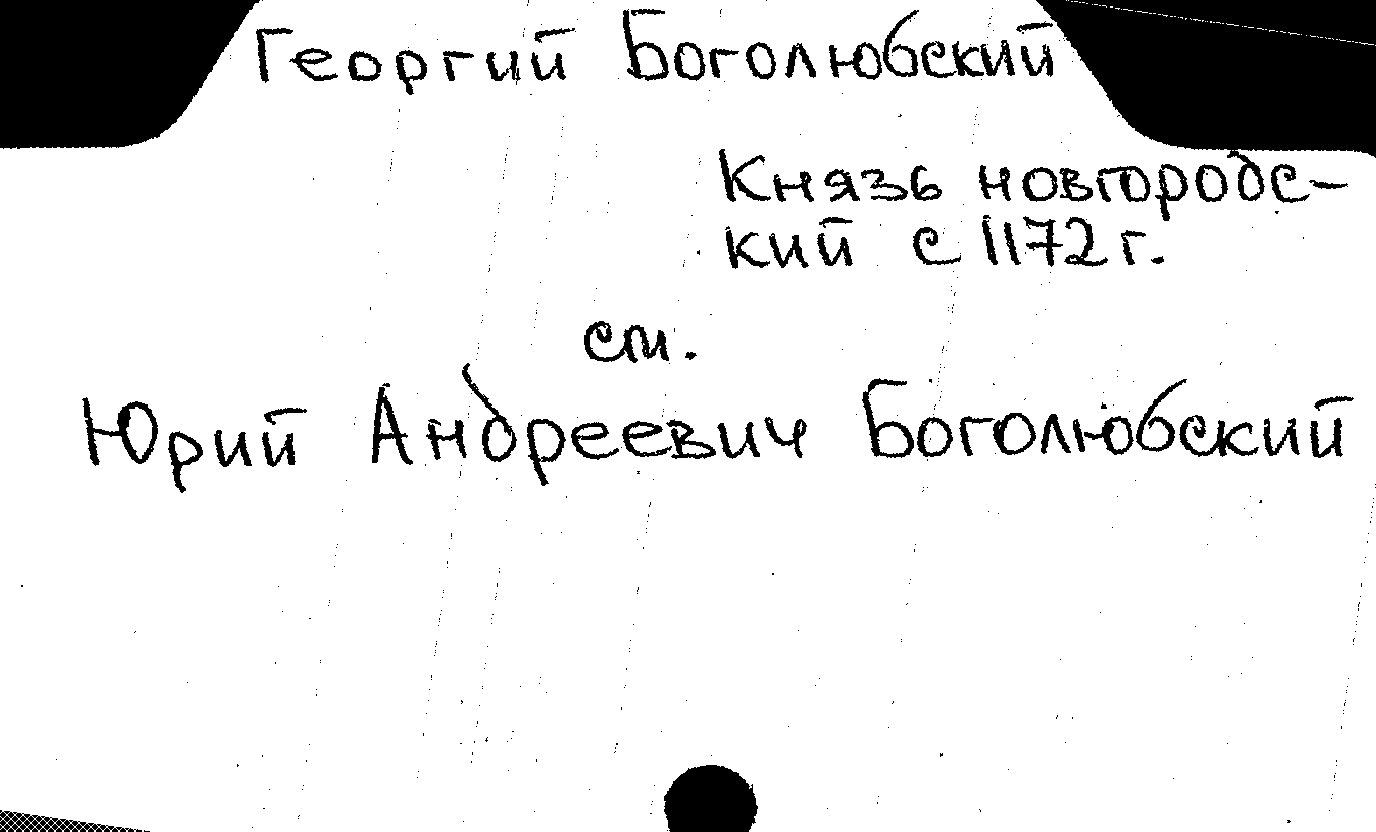 Георгий Боголюбский
Князь новгородс-
кий с 1172 г.
см.
Юрий Андреевич Боголюбский